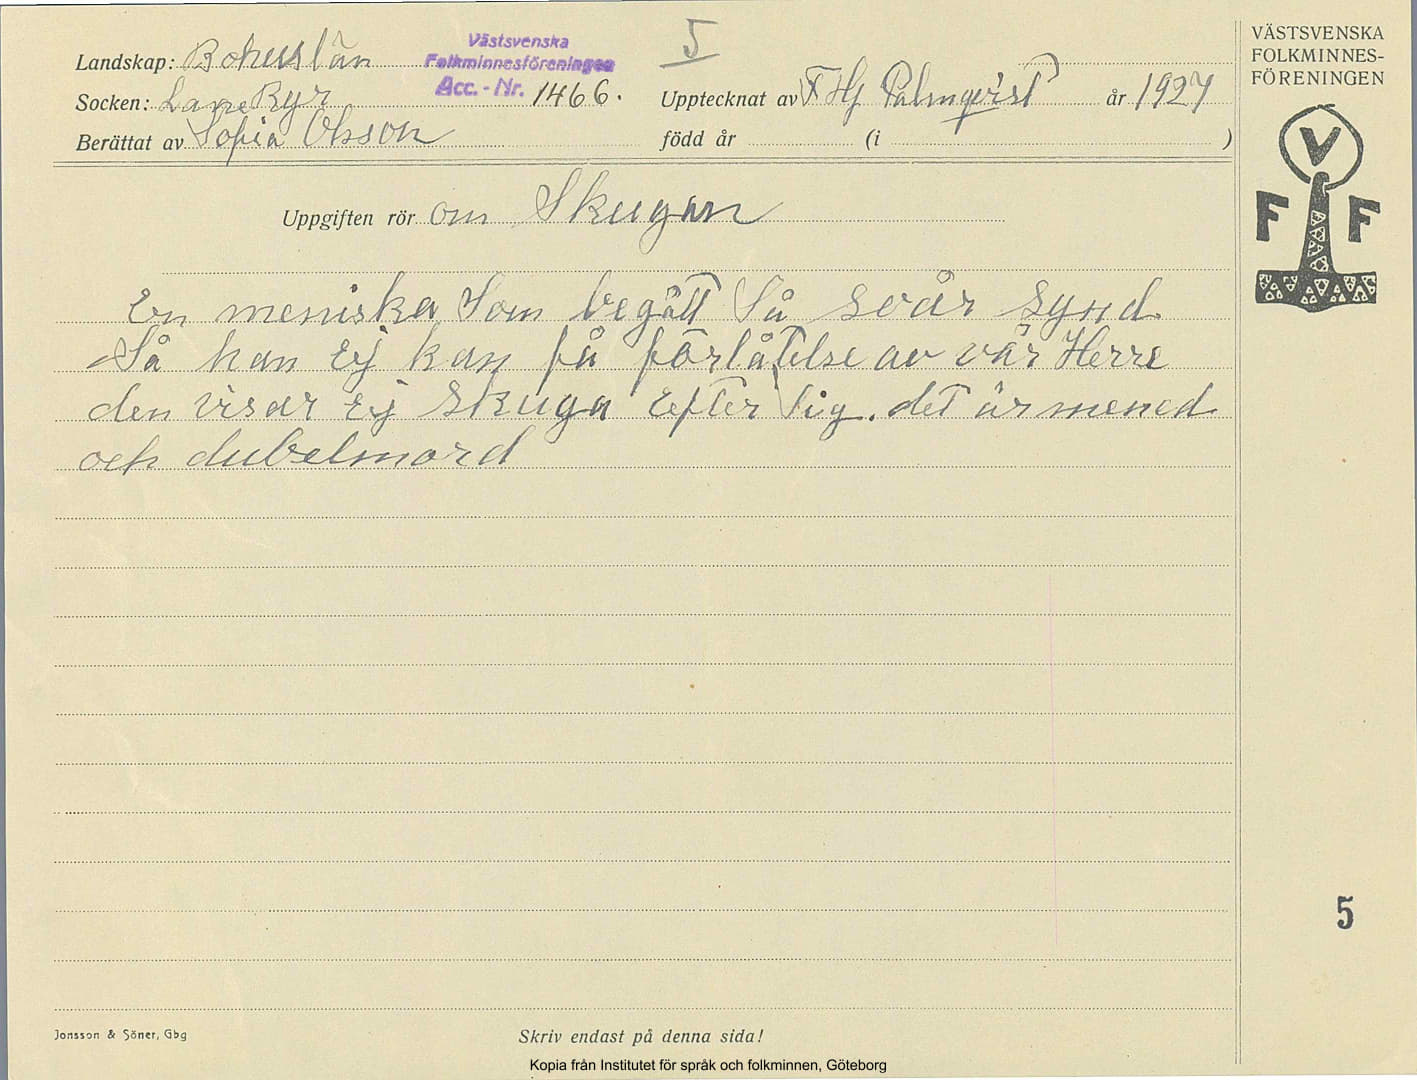 5
Västsvenska
Folkminnesföreningen
Acc. - Nr. 1466.
Landskap: Bohuslän
Socken: Lane Ryr
Upptecknat av F Hj Palmqvist år 1927
Berättat av Sofia Olsson
född år (i )
Uppgiften rör om Skugan
En meniska Som begått Så svår synd
Så han Ej kan få förlåtelse av vår Herre
den visar Ej skuga Efter Sig. det är mened
och dubelmord
VÄSTSVENSKA
FOLKMINNES-
FÖRENINGEN
V
F F
5
Jonsson & Söner, Gbg
Skriv endast på denna sida!
Kopia från Institutet för språk och folkminnen, Göteborg